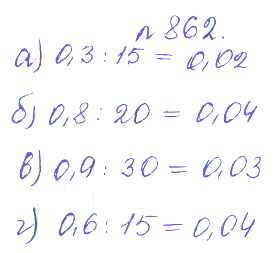 № 862.
а) 0,3 : 15 = 0,02
б) 0,8 : 20 = 0,04
в) 0,9 : 30 = 0,03
г) 0,6 : 15 = 0,04